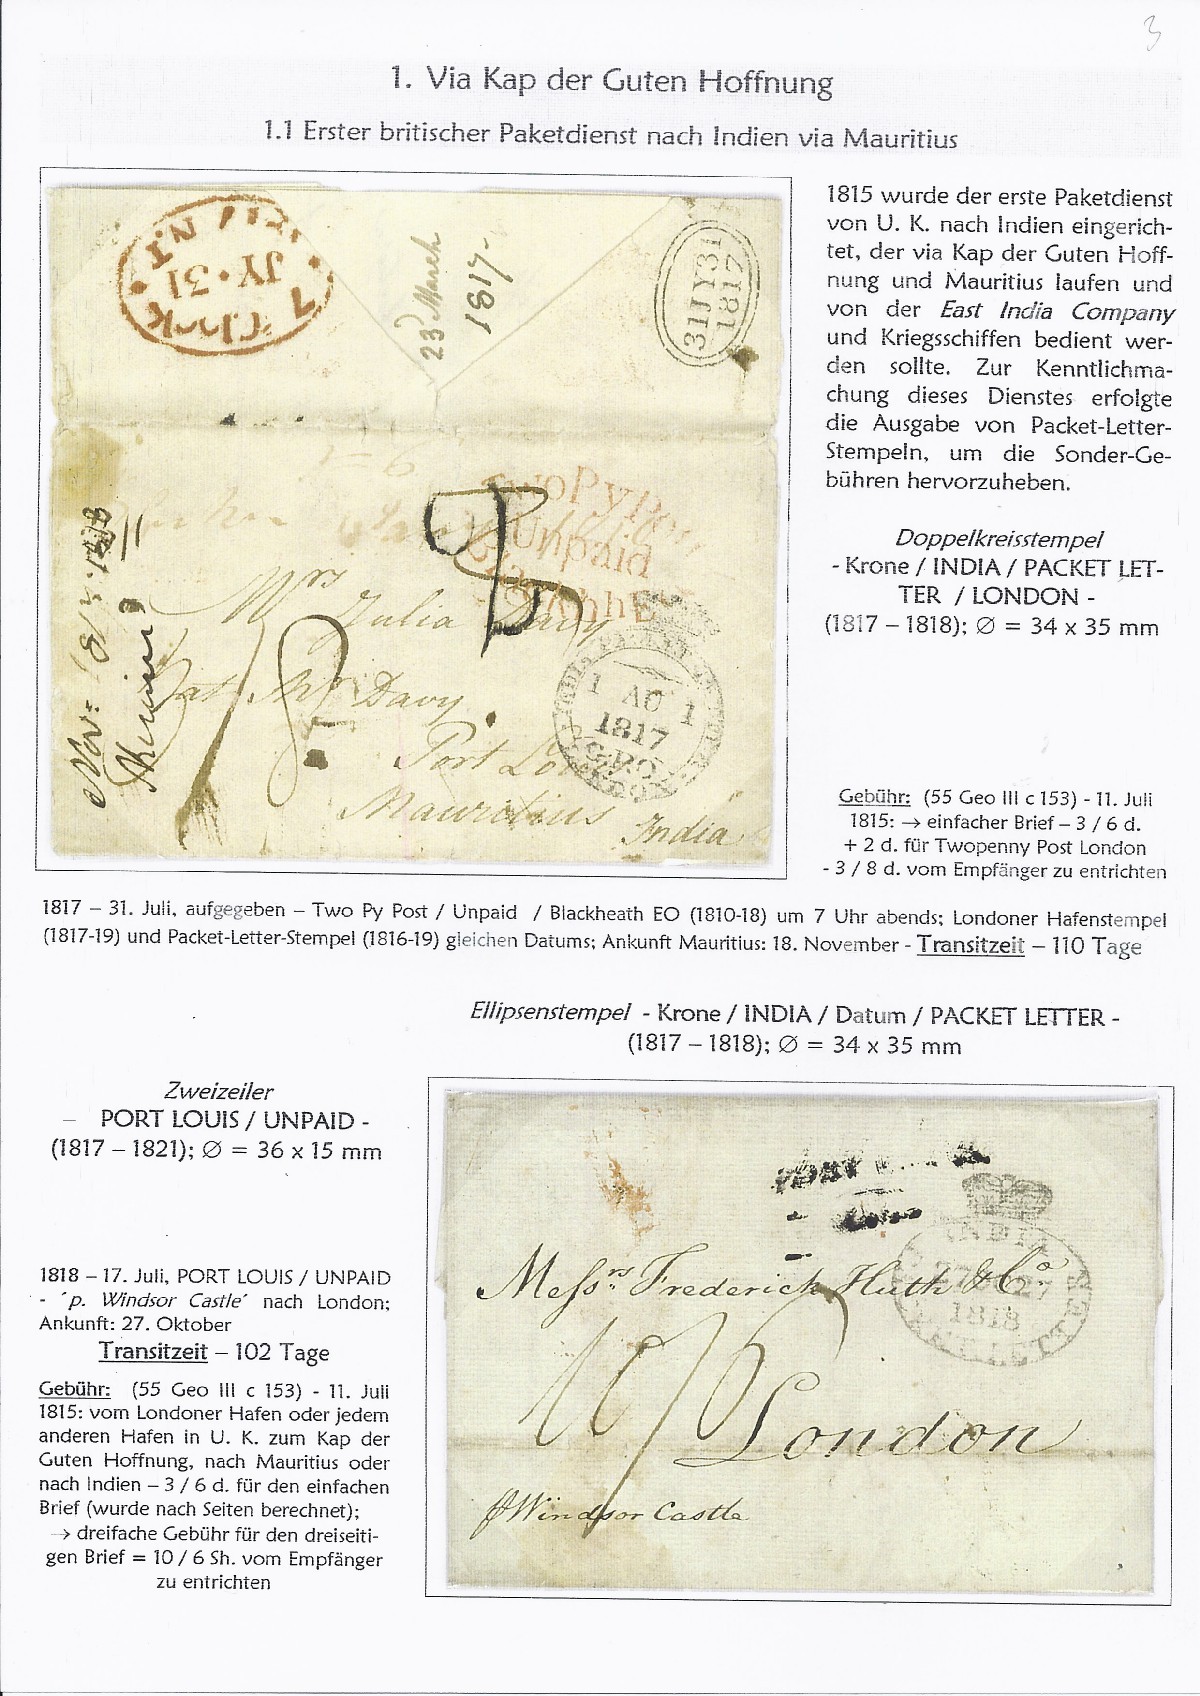 3
1. Via Kap der Guten Hoffnung
1.1 Erster britischer Paketdienst nach Indien via Mauritius
7
o'Clock
JY·31
N.T
23d March
1817-
31JY31
1817
Two Py Post
Unpaid
Mrs Julia Davy
Mr Davy
Port Lo
Mauritius
India
INDIA PACKET LETTER
1 AU 1
1817
G.P.O
LONDON
1815 wurde der erste Paketdienst
von U. K. nach Indien eingerich-
tet, der via Kap der Guten Hoff-
nung und Mauritius laufen und
von der East India Company
und Kriegsschiffen bedient wer-
den sollte. Zur Kenntlichma-
chung dieses Dienstes erfolgte
die Ausgabe von Packet-Letter-
Stempeln, um die Sonder-Ge-
bühren hervorzuheben.
Doppelkreisstempel
- Krone / INDIA / PACKET LET-
TER / LONDON -
(1817 – 1818); Ø = 34 x 35 mm
Gebühr: (55 Geo III c 153) - 11. Juli
1815: → einfacher Brief – 3 / 6 d.
+ 2 d. für Twopenny Post London
- 3 / 8 d. vom Empfänger zu entrichten
1817 – 31. Juli, aufgegeben – Two Py Post / Unpaid / Blackheath EO (1810-18) um 7 Uhr abends; Londoner Hafenstempel
(1817-19) und Packet-Letter-Stempel (1816-19) gleichen Datums; Ankunft Mauritius: 18. November - Transitzeit – 110 Tage
Ellipsenstempel - Krone / INDIA / Datum / PACKET LETTER -
(1817 – 1818); Ø = 34 x 35 mm
Zweizeiler
– PORT LOUIS / UNPAID -
(1817 – 1821); Ø = 36 x 15 mm
1818 – 17. Juli, PORT LOUIS / UNPAID
- ´p. Windsor Castle´ nach London;
Ankunft: 27. Oktober
Transitzeit – 102 Tage
Gebühr: (55 Geo III c 153) - 11. Juli
1815: vom Londoner Hafen oder jedem
anderen Hafen in U. K. zum Kap der
Guten Hoffnung, nach Mauritius oder
nach Indien – 3 / 6 d. für den einfachen
Brief (wurde nach Seiten berechnet);
→ dreifache Gebühr für den dreiseiti-
gen Brief = 10 / 6 Sh. vom Empfänger
zu entrichten
INDIA
27 27
1818
Messrs. Frederick Huth & Co.
10/6
London
p Windsor Castle